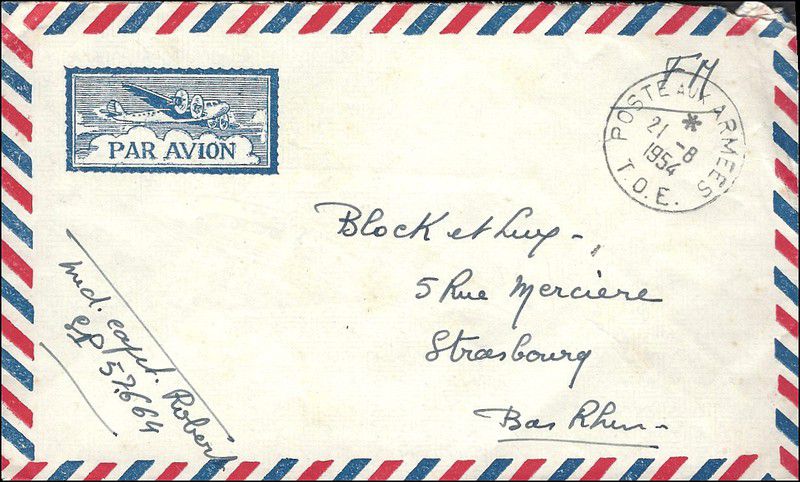 PAR AVION
FM
POSTE AUX ARMEES
*
21 -8
1954
T.O.E.
Block et Luy -
5 Rue Mercière
Strasbourg
Bas Rhin -
med. capt. Robert
SP 57.664